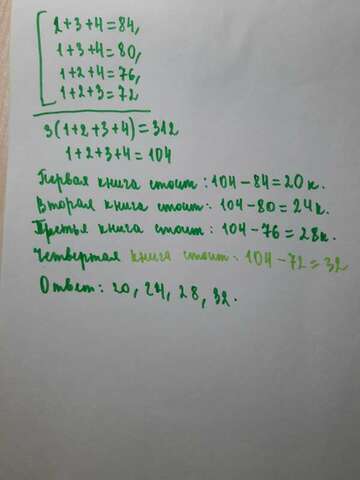 2+3+4=84,
1+3+4=80,
1+2+4=76,
1+2+3=72
3(1+2+3+4)=312
1+2+3+4=104
Первая книга стоит: 104-84=20 к.
Вторая книга стоит: 104-80=24 к.
Третья книга стоит: 104-76=28 к.
Четвертая книга стоит: 104-72=32
Ответ: 20, 24, 28, 32.